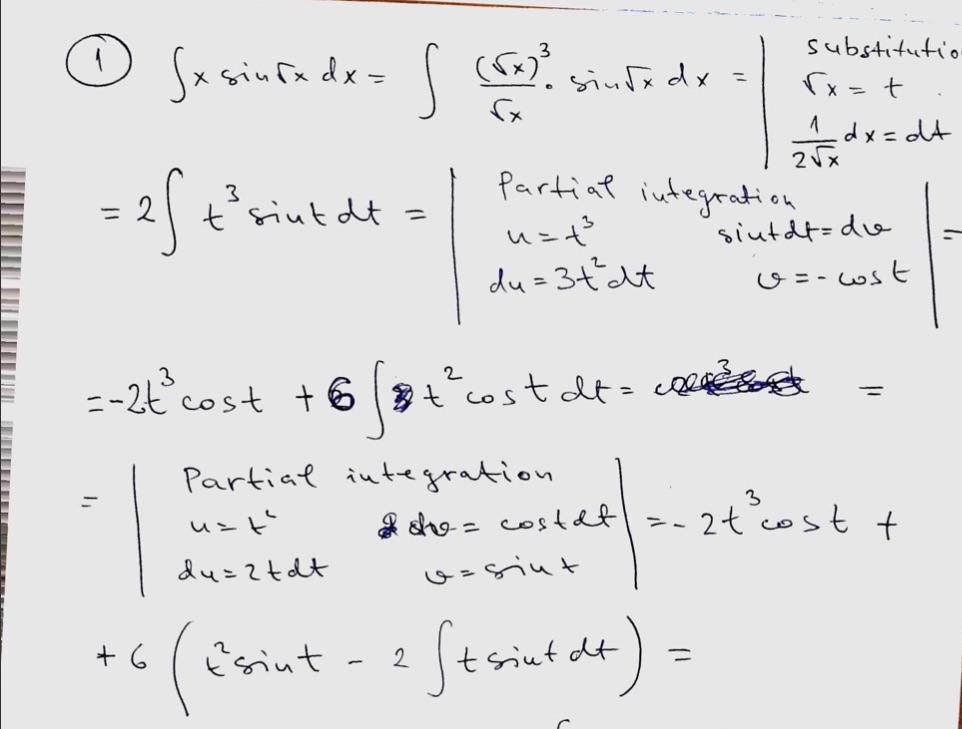 ① ∫x sin√x dx = ∫ (√x)³/√x · sin√x dx = | substitutio
√x = t
1/(2√x) dx = dt
= 2∫ t³ sint dt = | Partial integration
u = t³ sint dt = dv
du = 3t² dt v = - cos t | =
= -2t³ cos t + 6 ∫ t² cos t dt = =
= | Partial integration
u = t² dv = cos t dt | = - 2t³ cos t +
du = 2t dt v = sin t
+ 6 ( t² sin t - 2 ∫ t sin t dt ) =